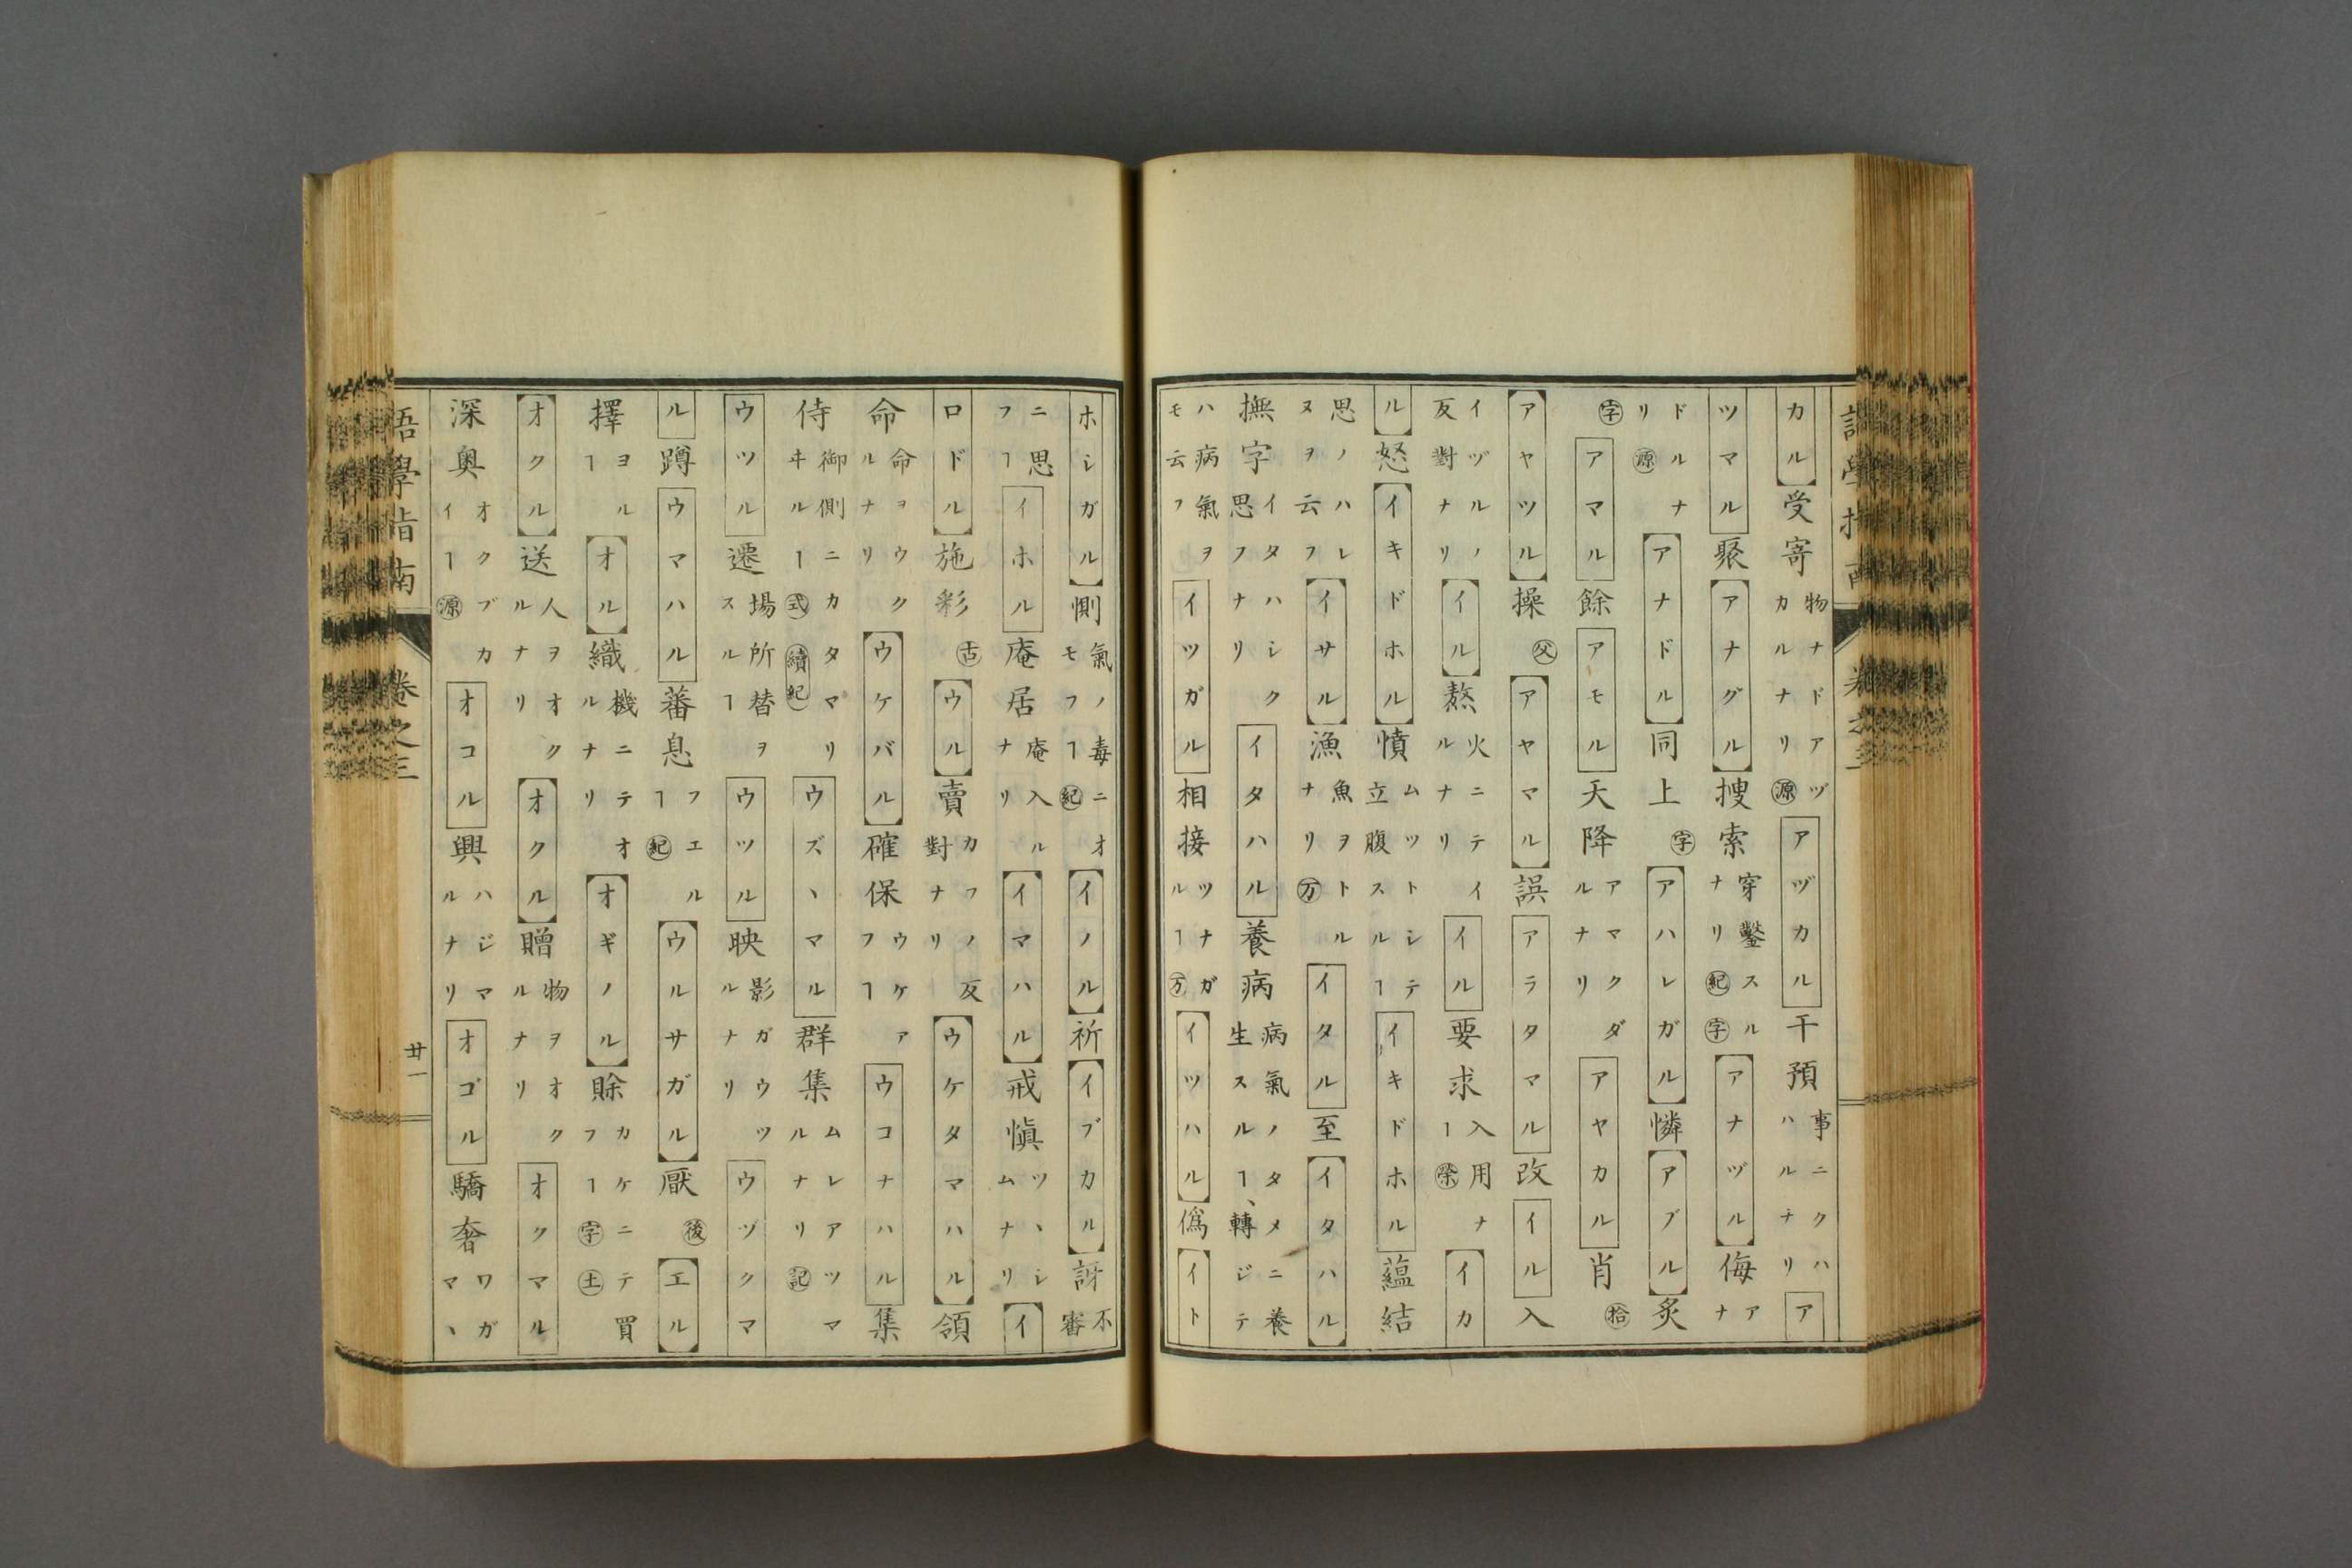 カル受寄物ナドアヅカルナリ源アヅカル干預事ニクハハルナリア
ツマル聚アナグル捜索穿鑿スルナリ紀字アナヅル侮アナ
ドルナリ源アナドル同上字アハレガル憐アブル炙
字アマル餘アモル天降アマクダルナリアヤカル肖拾
アヤツル操父アヤマル誤アラタマル改イル入
イヅルノ反對ナリイル熬火ニテイルナリイル要求入用ナヿ榮イカ
ル怒イキドホル憤ムツトシテ立腹スルヿイキドホル蘊結
思ノハレヌヲ云フイサル漁魚ヲトルナリ万イタル至イタハル
撫字イタハシク思フナリイタハル養病病氣ノタメニ養生スルヿ、轉ジテ
ハ病氣ヲモ云フイツガル相接ツナガルヿ万イツハル僞イト
ホシガル惻氣ノ毒ニオモフヿ紀イノル祈イブカル訝不審
ニ思フヿイホル庵居庵入ルナリイマハル戒愼ツヽシムナリイ
ロドル施彩古ウル賣カフノ反對ナリウケタマハル領
命命ヲウクルナリウケバル確保ウケアフヿウコナハル集
侍御側ニカタマリヰルヿ式續紀ウズヽマル群集ムレアツマルナリ記
ウツル遷場所替ヲスルヿウツル映影ガウツルナリウヅクマ
ル蹲ウマハル蕃息フエルヿ紀ウルサガル厭後エル
擇ヨルヿオル織機ニテオルナリオギノル賒カケニテ買フヿ字土
オクル送人ヲオクルナリオクル贈物ヲオクルナリオクマル
深奥オクブカイヿ源オコル興ハジマルナリオゴル驕奢ワガマヽ
語學指南
卷之三
廿一